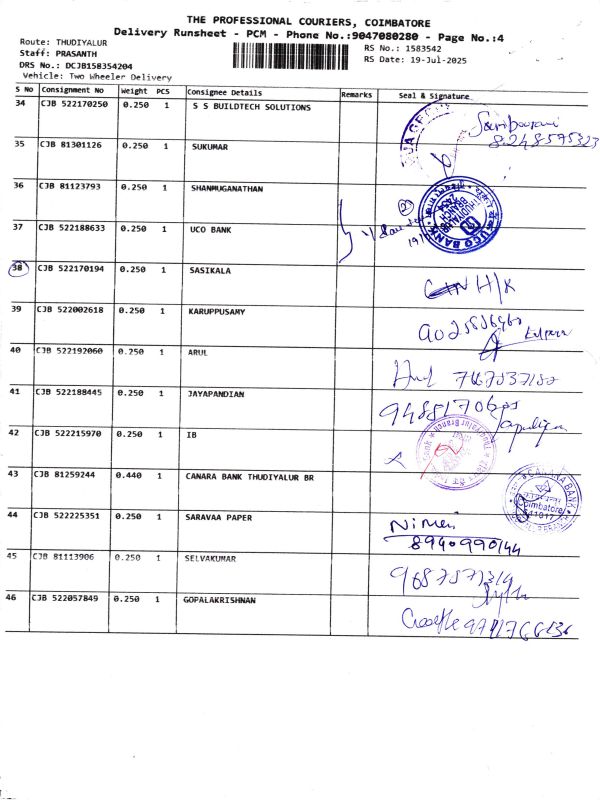 THE PROFESSIONAL COURIERS, COIMBATORE
Delivery Runsheet - PCM - Phone No.:9047080280 - Page No.:4
Route: THUDIYALUR
Staff: PRASANTH
DRS No.: DCJB158354204
Vehicle: Two Wheeler Delivery
RS No.: 1583542
RS Date: 19-Jul-2025
S No Consignment No Weight PCS Consignee Details Remarks Seal & Signature
34 CJB 522170250 0.250 1 S S BUILDTECH SOLUTIONS
8248595323
35 CJB 81301126 0.250 1 SUKUMAR
36 CJB 81123793 0.250 1 SHANMUGANATHAN
37 CJB 522188633 0.250 1 UCO BANK
UCO BANK
38 CJB 522170194 0.250 1 SASIKALA
H/K
39 CJB 522002618 0.250 1 KARUPPUSAMY
40 CJB 522192060 0.250 1 ARUL
41 CJB 522188445 0.250 1 JAYAPANDIAN
42 CJB 522215970 0.250 1 IB
43 CJB 81259244 0.440 1 CANARA BANK THUDIYALUR BR
CANARA BANK
Coimbatore
44 CJB 522225351 0.250 1 SARAVAA PAPER
8940990144
45 CJB 81113906 0.250 1 SELVAKUMAR
46 CJB 522057849 0.250 1 GOPALAKRISHNAN